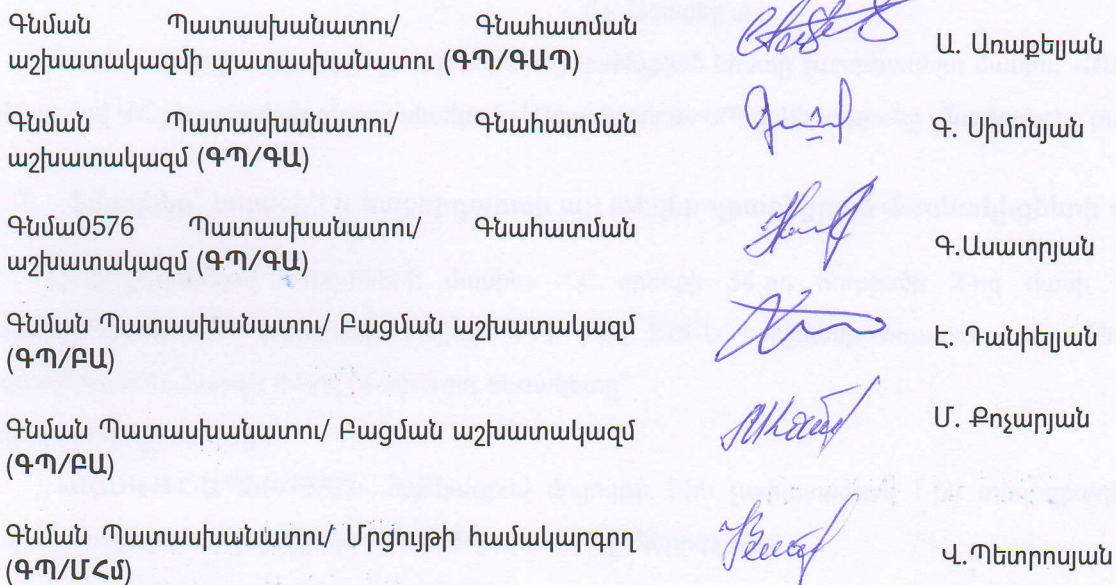 Գնման Պատասխանատու/ Գնահատման
աշխատակազմի պատասխանատու (ԳՊ/ԳԱՊ)
Ա. Առաքելյան
Գնման Պատասխանատու/ Գնահատման
աշխատակազմ (ԳՊ/ԳԱ)
Գ. Սիմոնյան
Գնմա0576 Պատասխանատու/ Գնահատման
աշխատակազմ (ԳՊ/ԳԱ)
Գ.Ասատրյան
Գնման Պատասխանատու/ Բացման աշխատակազմ
(ԳՊ/ԲԱ)
Է. Դանիելյան
Գնման Պատասխանատու/ Բացման աշխատակազմ
(ԳՊ/ԲԱ)
Մ. Քոչարյան
Գնման Պատասխանատու/ Մրցույթի համակարգող
(ԳՊ/ՄՀմ)
Վ. Պետրոսյան